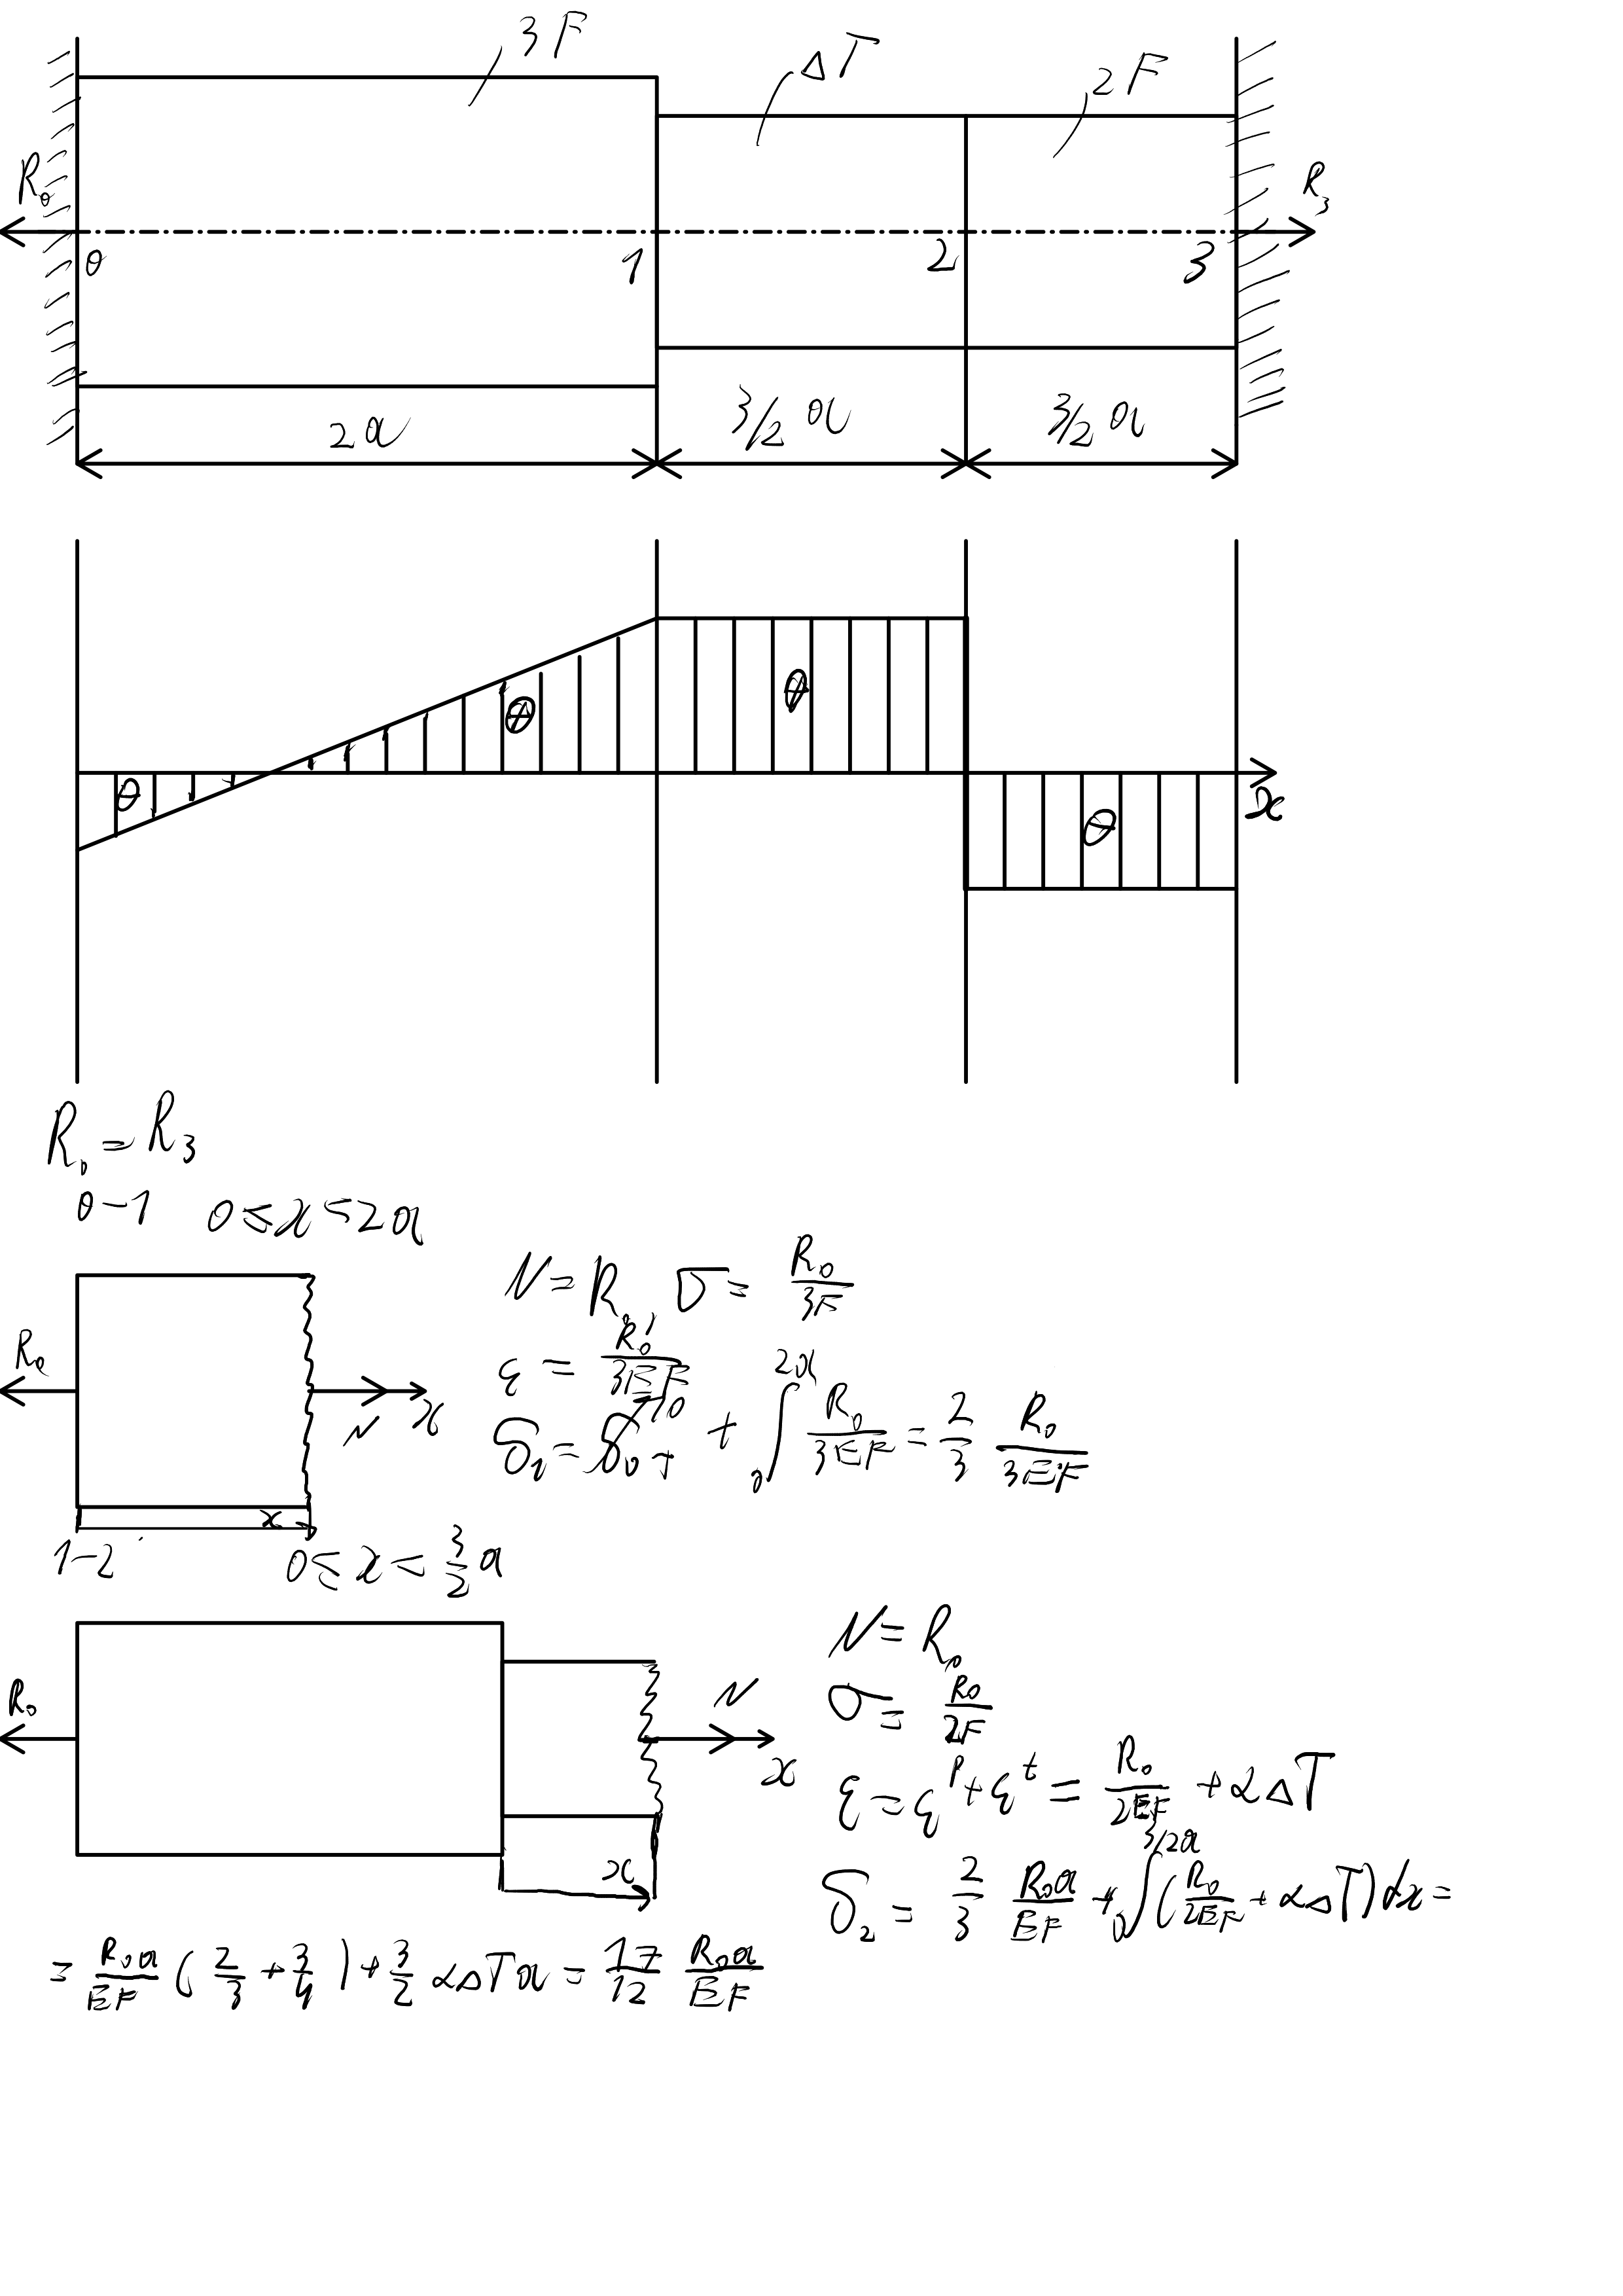 3F
ΔT
2F
R₀
R₃
0 1 2 3
2a 3/2 a 3/2 a
⊖ ⊕ ⊕ ⊖
x
R₀ = R₃
0-1 0 ≤ x ≤ 2a
N = R₀ σ = R₀/3F
R₀
ε = R₀/3EF
N x
δ₁ = δ₀ + + ∫₀^2a R₀/3EF = 2/3 R₀/3EF
x
1-2 0 ≤ x ≤ 3/2 a
N = R₀
R₀
N
σ = R₀/2F
x
ε = ε^P + ε^t = R₀/2EF + αΔT
x
δ₂ = 2/3 R₀a/EF + ∫₀^3/2a (R₀/2EF + αΔT) dx =
= R₀a/EF (2/3 + 3/4) + 3/2 αΔTa = 17/12 R₀a/EF